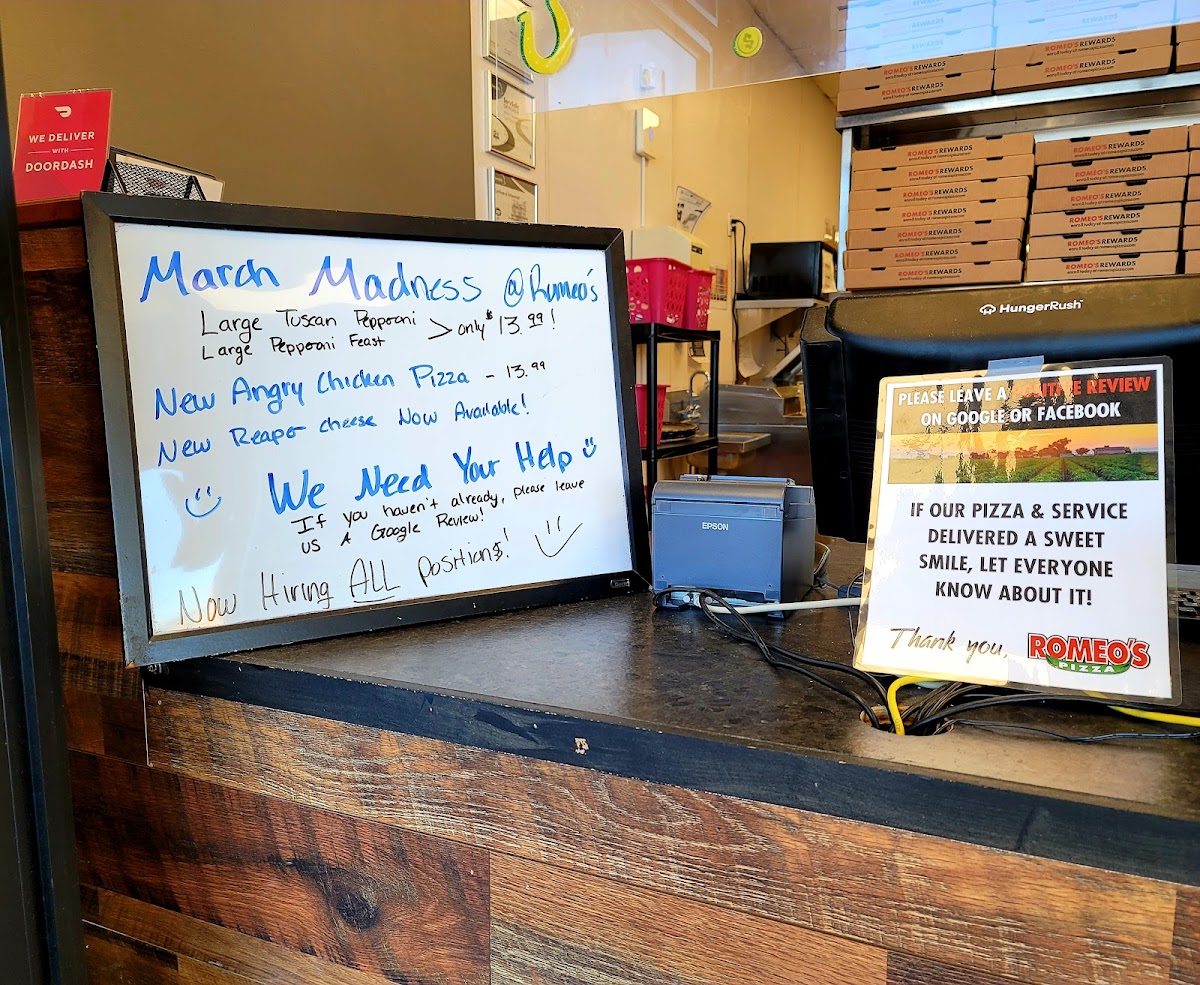 WE DELIVER
WITH
DOORDASH
March Madness @Romeo's
Large Tuscan Pepperoni
Large Pepperoni Feast
> only $13.99!
New Angry Chicken Pizza - 13.99
New Reaper cheese Now Available!
We Need Your Help
If you haven't already, please leave
us A Google Review!
Now Hiring ALL Positions!
EPSON
HungerRush
PLEASE LEAVE A POSITIVE REVIEW
ON GOOGLE OR FACEBOOK
IF OUR PIZZA & SERVICE
DELIVERED A SWEET
SMILE, LET EVERYONE
KNOW ABOUT IT!
Thank you,
ROMEO'S
PIZZA
ROMEO'S REWARDS
enroll today at romeospizza.com